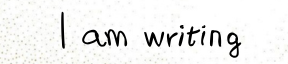 I am writing